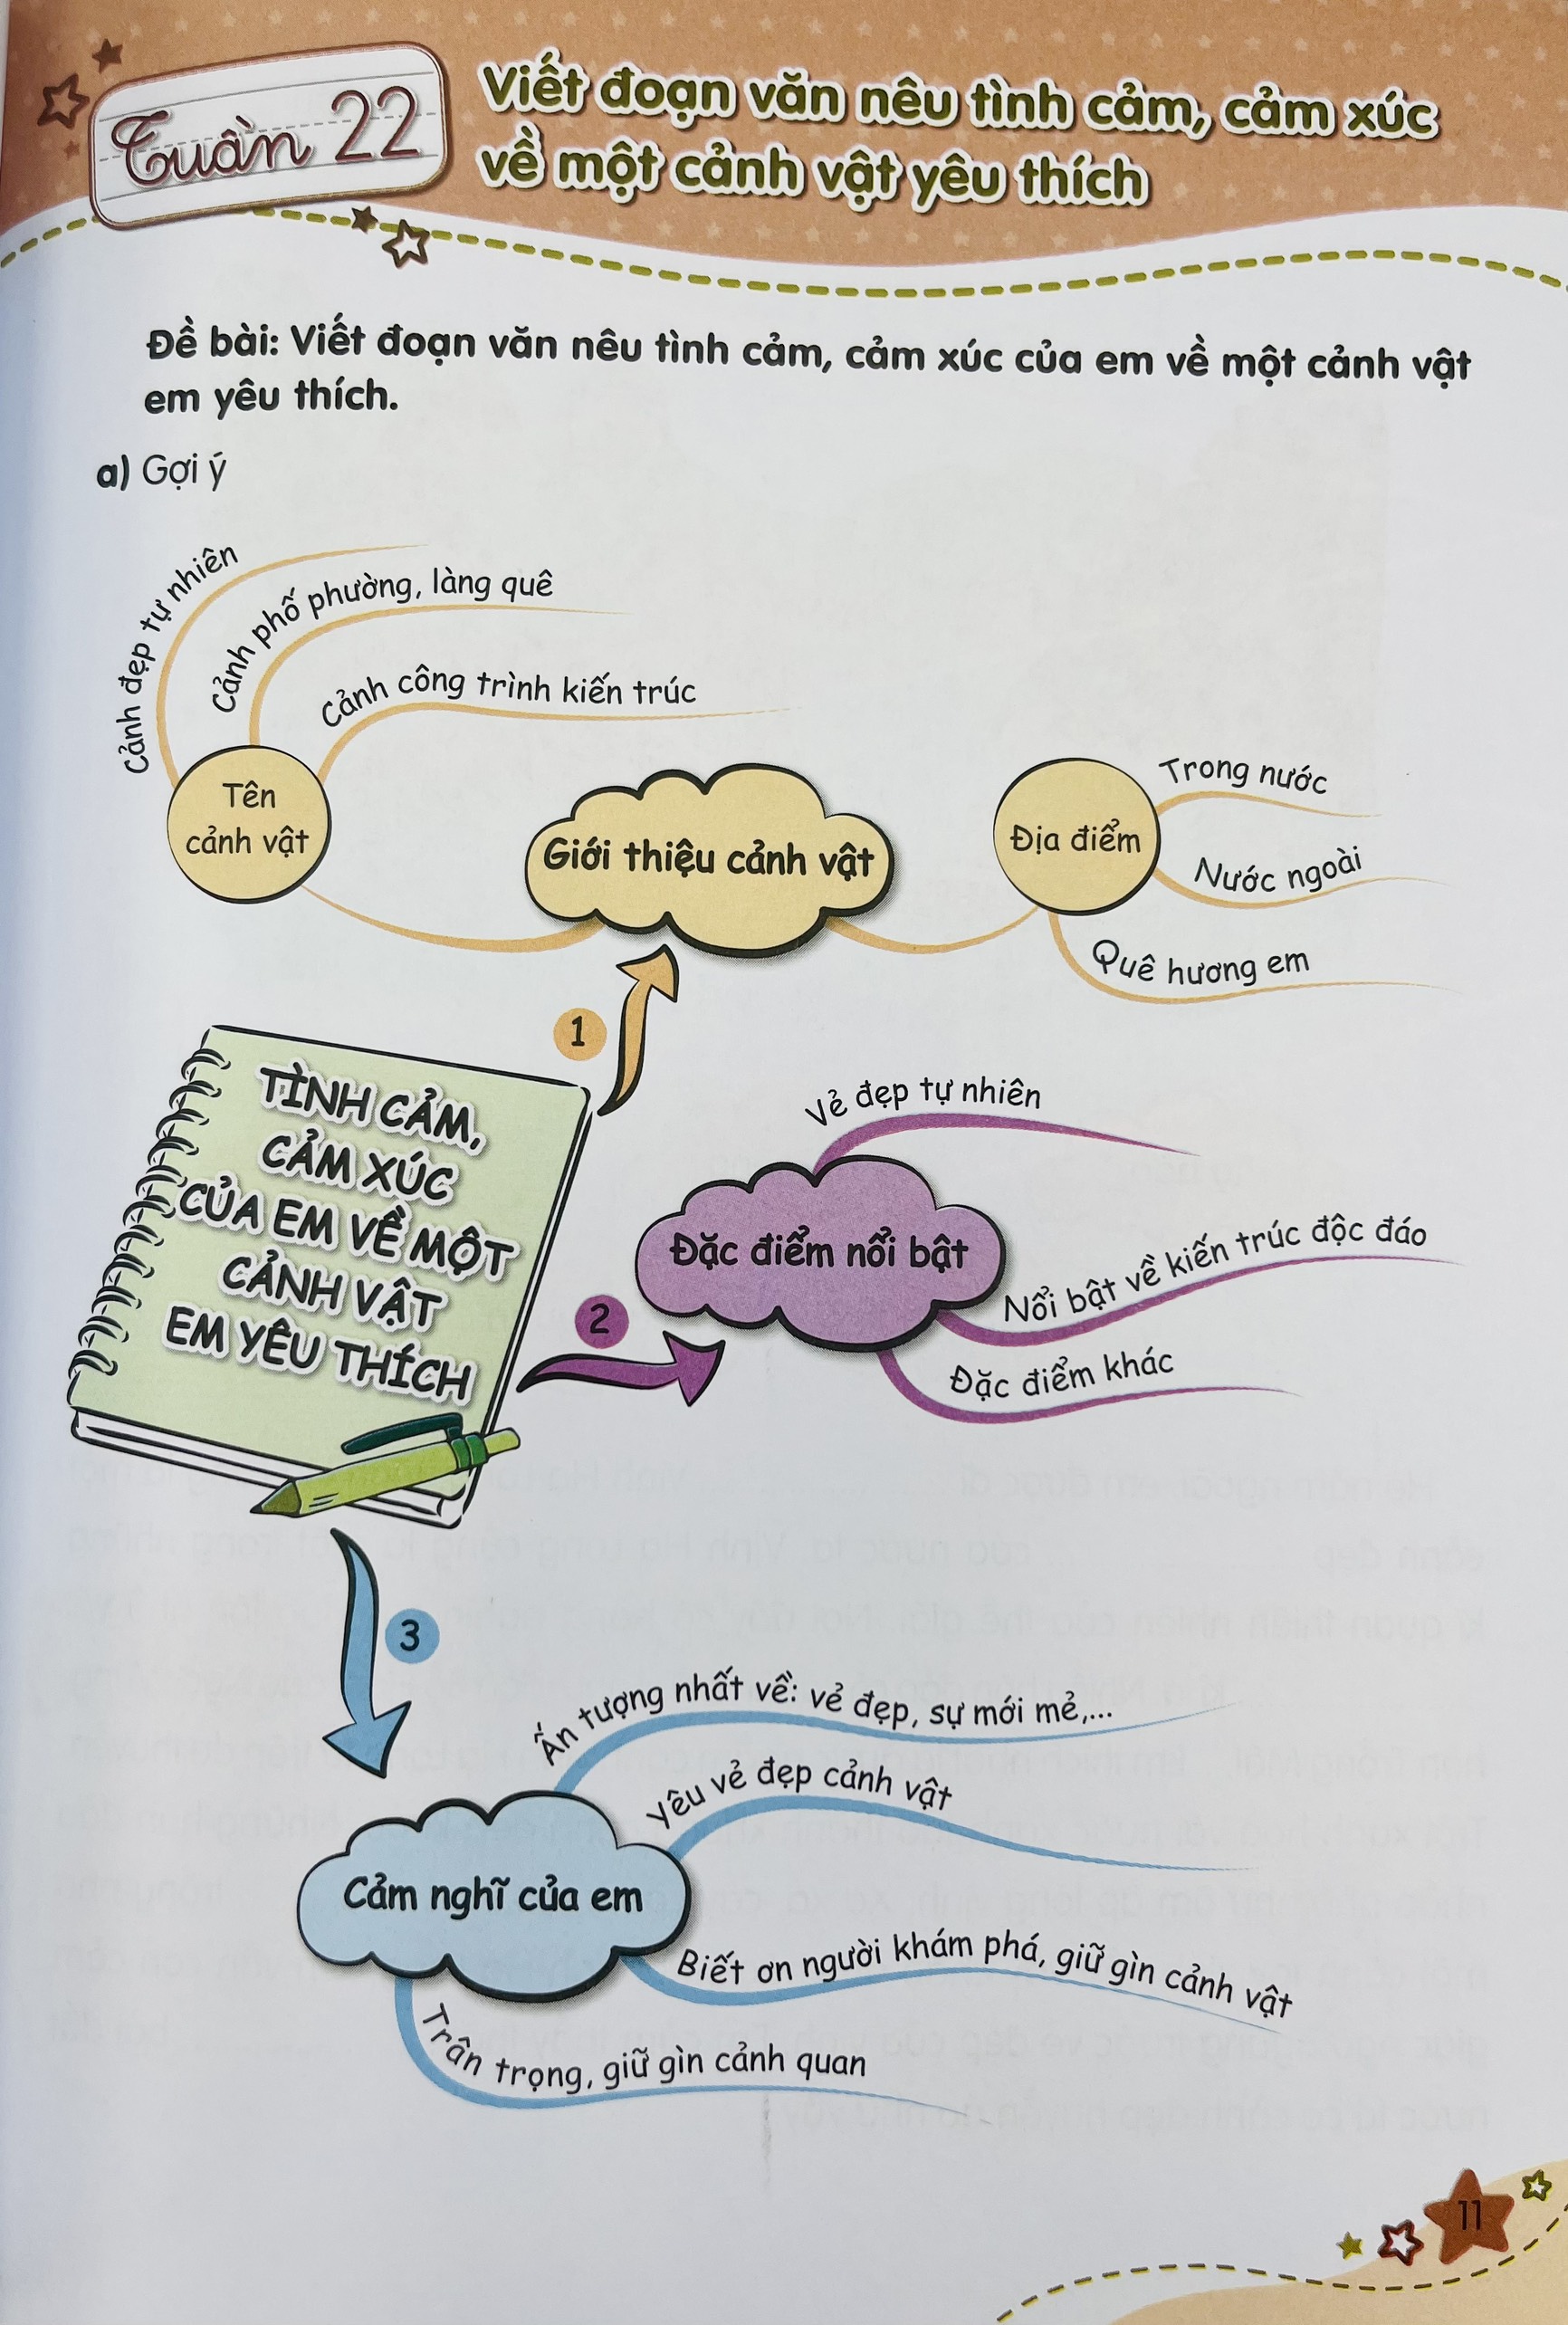 Tuần 22
Viết đoạn văn nêu tình cảm, cảm xúc
về một cảnh vật yêu thích
Đề bài: Viết đoạn văn nêu tình cảm, cảm xúc của em về một cảnh vật
em yêu thích.
a) Gợi ý
Cảnh đẹp tự nhiên
Cảnh phố phường, làng quê
Cảnh công trình kiến trúc
Tên
cảnh vật
Giới thiệu cảnh vật
Địa điểm
Trong nước
Nước ngoài
Quê hương em
1
TÌNH CẢM,
CẢM XÚC
CỦA EM VỀ MỘT
CẢNH VẬT
EM YÊU THÍCH
2
Vẻ đẹp tự nhiên
Đặc điểm nổi bật
Nổi bật về kiến trúc độc đáo
Đặc điểm khác
3
Ấn tượng nhất về: vẻ đẹp, sự mới mẻ,...
Yêu vẻ đẹp cảnh vật
Cảm nghĩ của em
Biết ơn người khám phá, giữ gìn cảnh vật
Trân trọng, giữ gìn cảnh quan
11